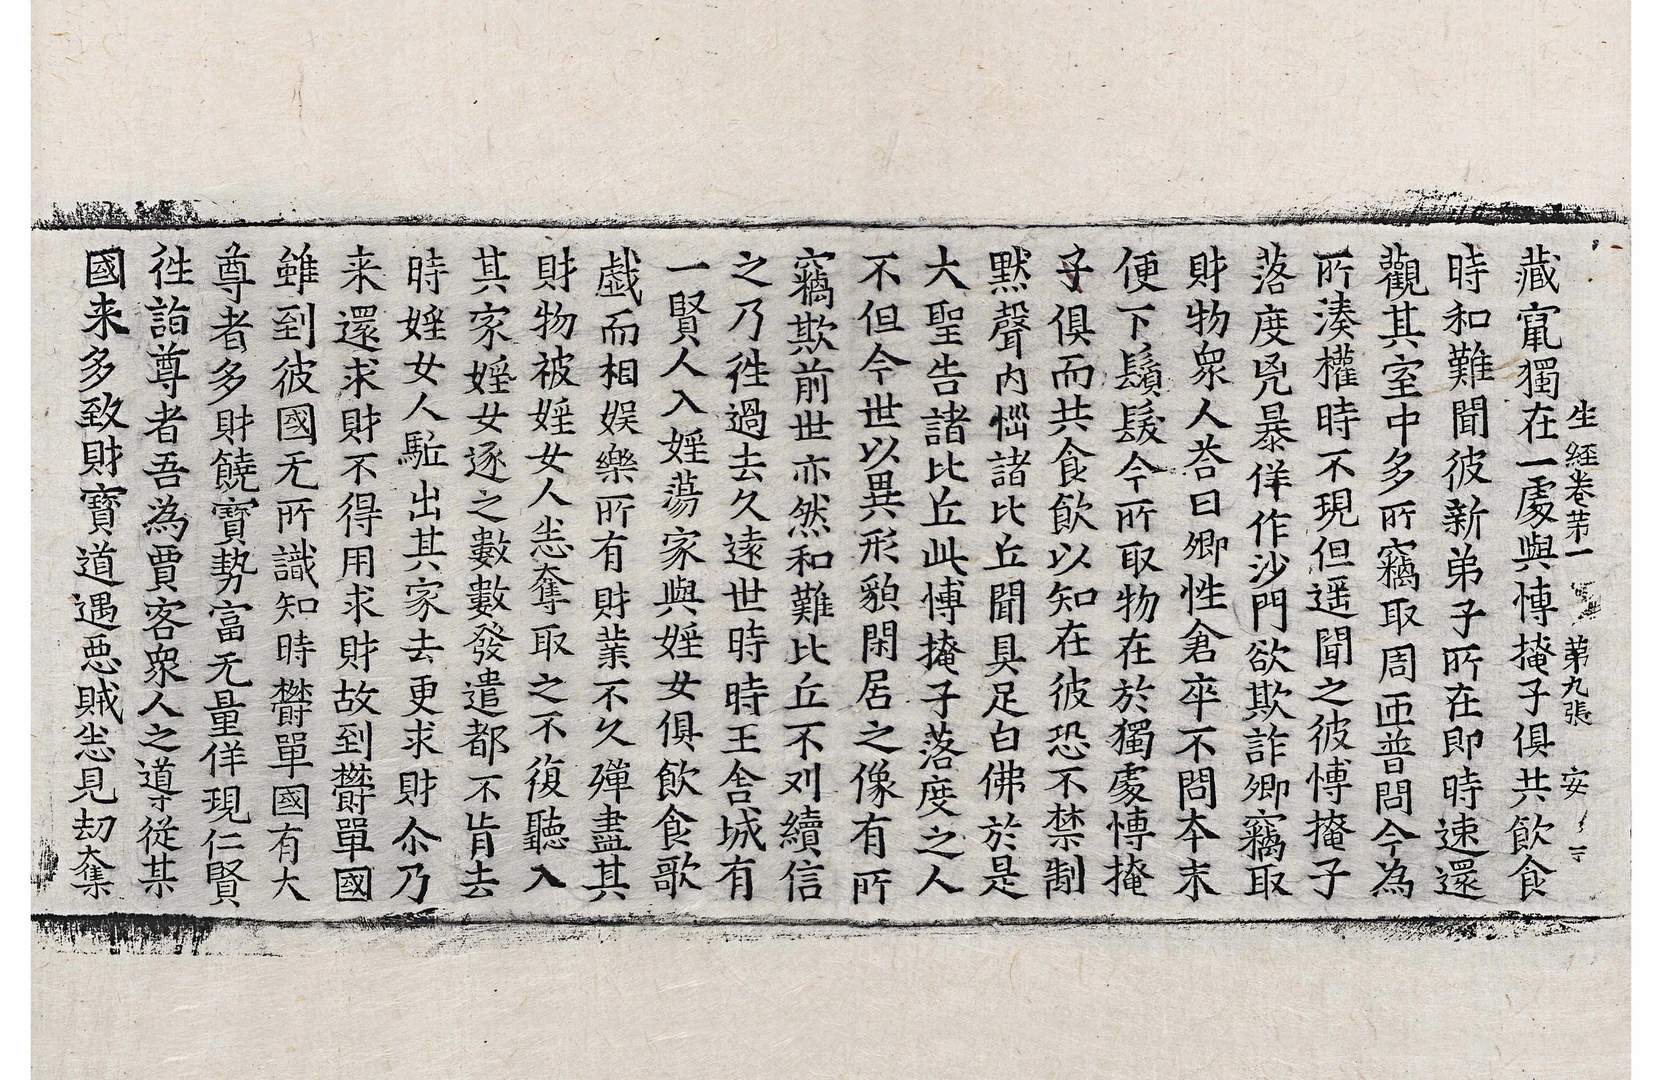 生経卷苐一 苐九張 安
藏竄獨在一處與慱掩子俱共飲食
時和難聞彼新弟子所在即時速還
觀其室中多所竊取周帀普問今為
所湊權時不現但遥聞之彼慱掩子
落度兇暴佯作沙門欲欺詐卿竊取
財物衆人荅曰卿性倉卒不問本末
便下鬚髮今所取物在於獨處慱掩
子俱而共食飲以知在彼恐不禁制
黙聲内惱諸比丘聞具足白佛於是
大聖告諸比丘此慱掩子落度之人
不但今世以異形貌閑居之像有所
竊欺前世亦然和難比丘不刈續信
之乃徃過去久遠世時時王舎城有
一賢人入婬蕩家與婬女俱飲食歌
戯而相娯樂所有財業不久殫盡其
財物被婬女人悉奪取之不復聽入
其家婬女逐之數數發遣都不肯去
時婬女人駈出其家去更求財尒乃
来還求財不得用求財故到欝單國
雖到彼國无所識知時欝單國有大
尊者多財饒寶勢富无量佯現仁賢
徃詣尊者吾為賈客衆人之導従某
國来多致財寶道遇惡賊悉見劫奪